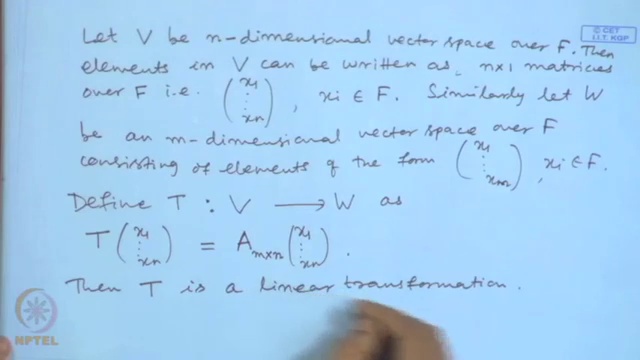 © CET
I.I.T. KGP
Let V be n-dimensional vector space over F. Then
elements in V can be written as, n×1 matricies
over F i.e. (x1 ⋮ xn), xi ∈ F. Similarly let W
be an m-dimensional vector space over F
consisting of elements of the form (x1 ⋮ xm), xi ∈ F.
Define T : V → W as
T(x1 ⋮ xn) = Am×n (x1 ⋮ xn).
Then T is a linear transformation.
NPTEL